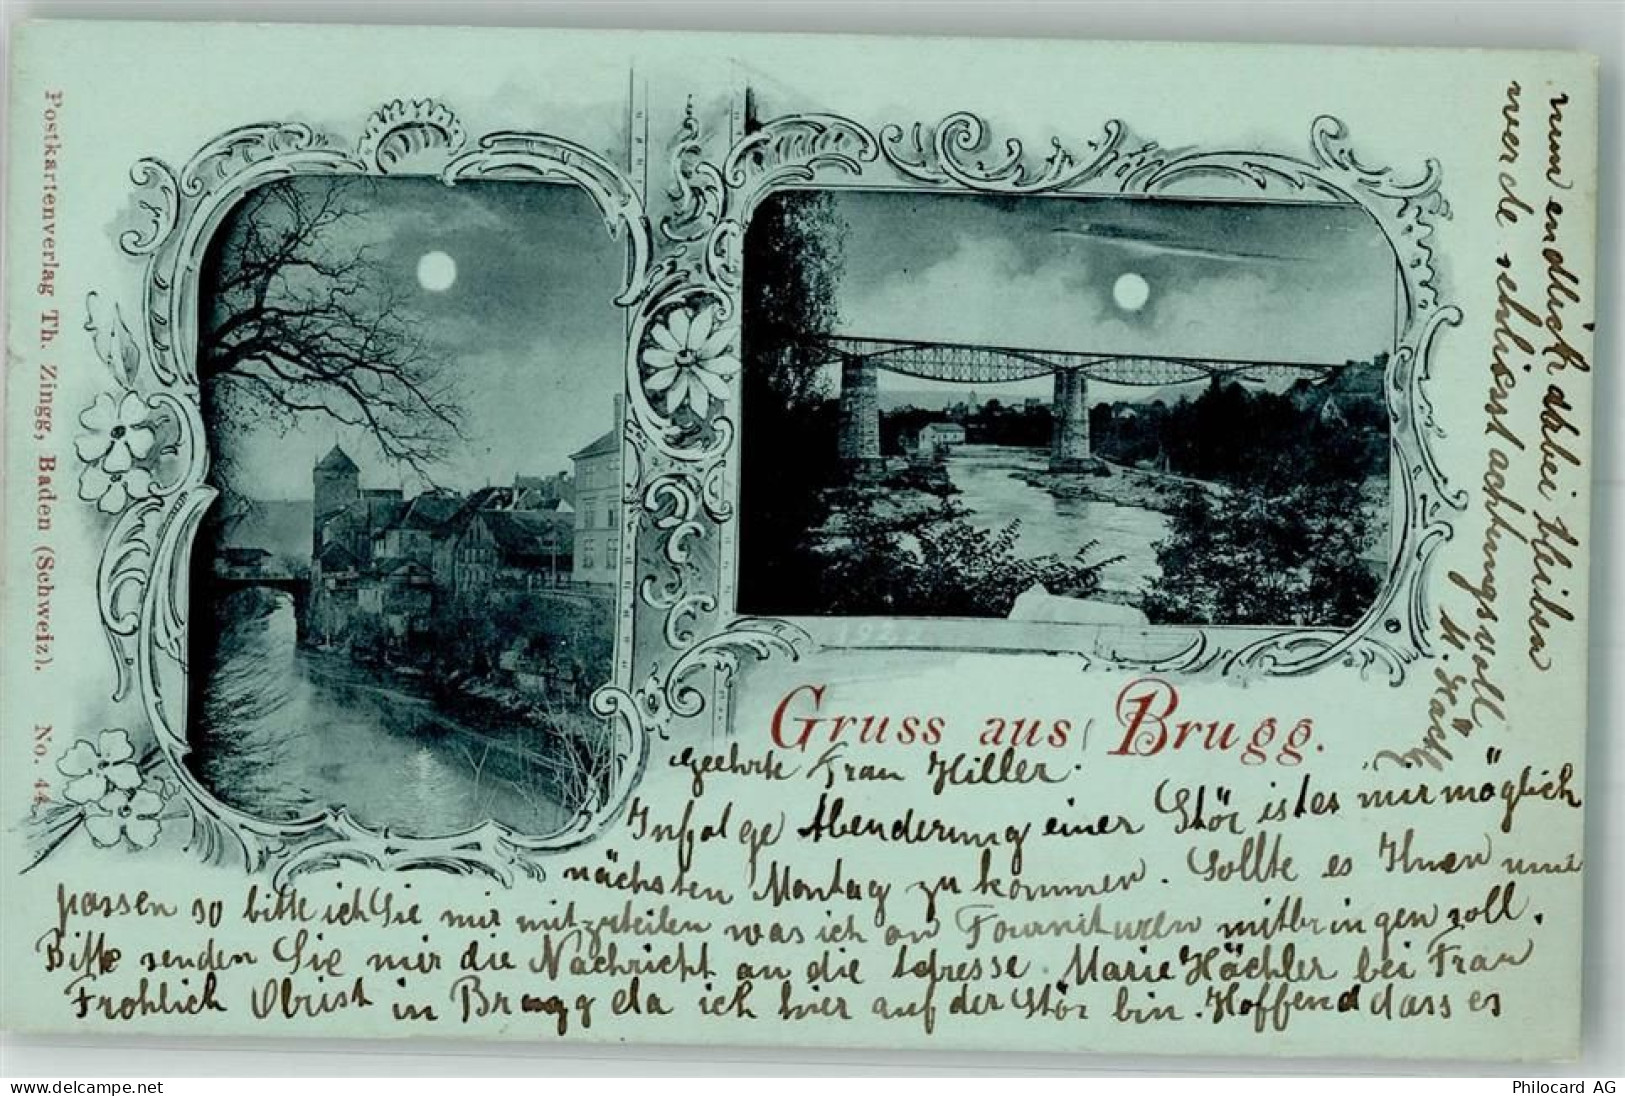 Postkartenverlag Th. Zingg, Baden (Schweiz). No. 44.
Gruss aus Brugg.
Geehrte Frau Hiller.
Infolge Abenderung einer Stör ist es mir möglich
nächsten Montag zu kommen. Sollte es Ihnen nun
passen so bitte ich Sie mir mitzuteilen was ich an Fournituren mitbringen soll.
Bitte senden Sie mir die Nachricht an die Adresse. Marie Hächler bei Frau
Fröhlich Obrist in Brugg da ich hier auf der Stör bin. Hoffend dass es
nun endlich dabei bleiben
werde schliesst achtungsvoll
M. Hächler
www.delcampe.net
Philocard AG